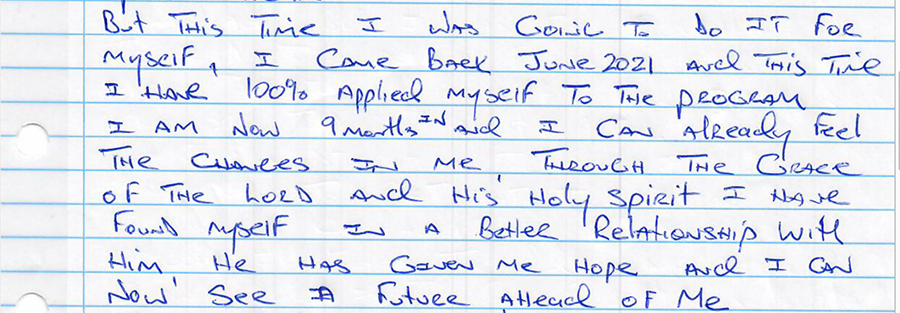 But This Time I was Going To do IT For
Myself, I Came Back June 2021 and This Time
I Have 100% Applied Myself To The program
I am Now 9 Months IN and I Can Already Feel
The Changes In me, Through The Grace
of The Lord and His Holy Spirit I Have
Found Myself In a Better Relationship With
Him He Has Given Me Hope and I Can
Now See A Future Ahead of Me